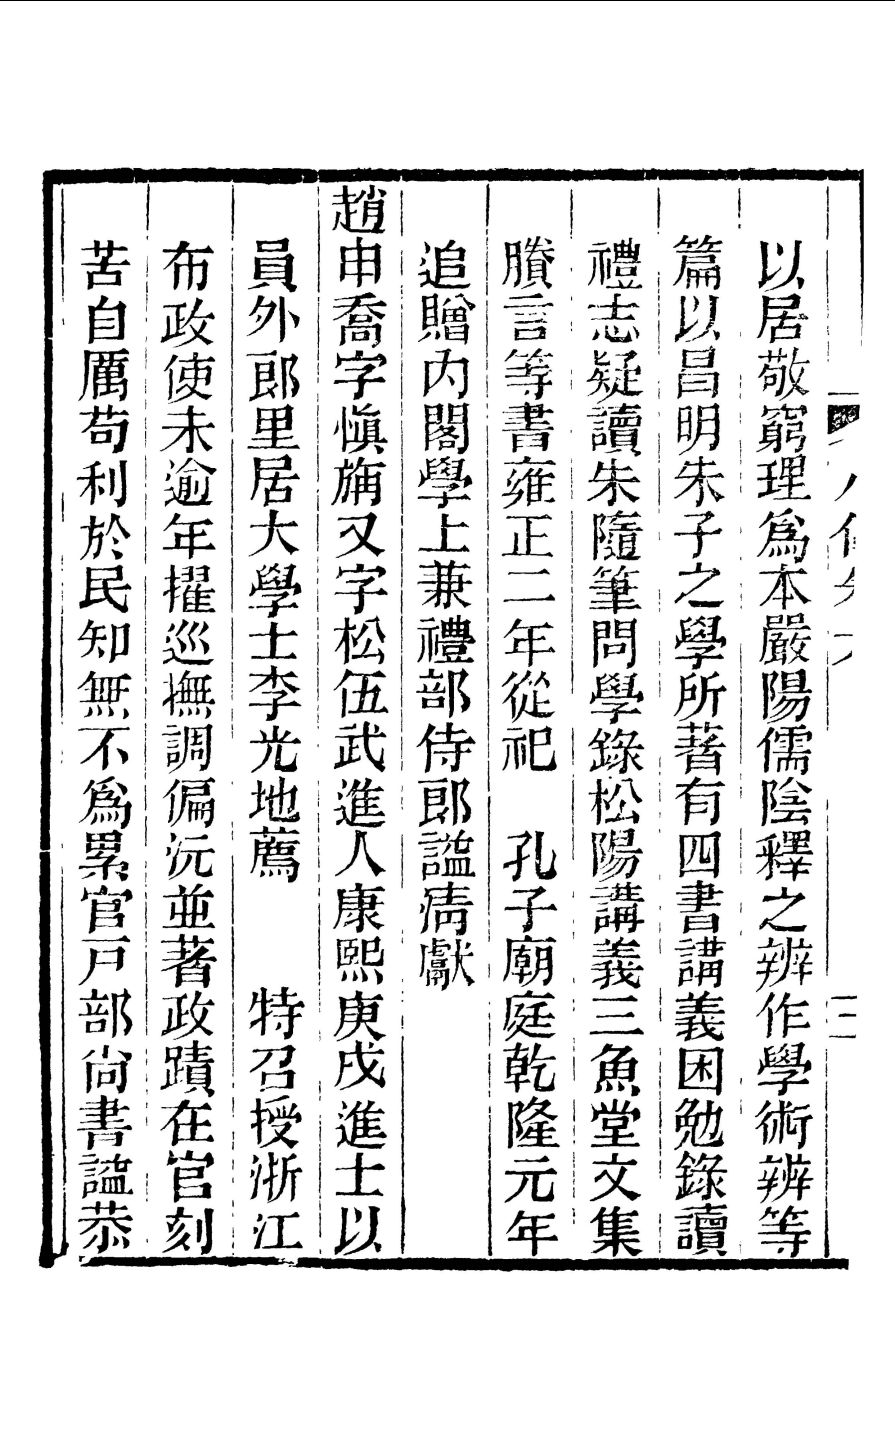 以居敬窮理爲本嚴陽儒陰釋之辨作學術辨等
篇以昌明朱子之學所著有四書講義困勉錄讀
禮志疑讀朱隨筆問學錄松陽講義三魚堂文集
賸言等書雍正二年從祀　孔子廟庭乾隆元年
追贈內閣學士兼禮部侍郎謚清獻
趙申喬字愼旃又字松伍武進人康熙庚戌進士以
員外郎里居大學士李光地薦　　特召授浙江
布政使未逾年擢巡撫調偏沅並著政蹟在官刻
苦自厲苟利於民知無不爲累官戸部尙書謚恭